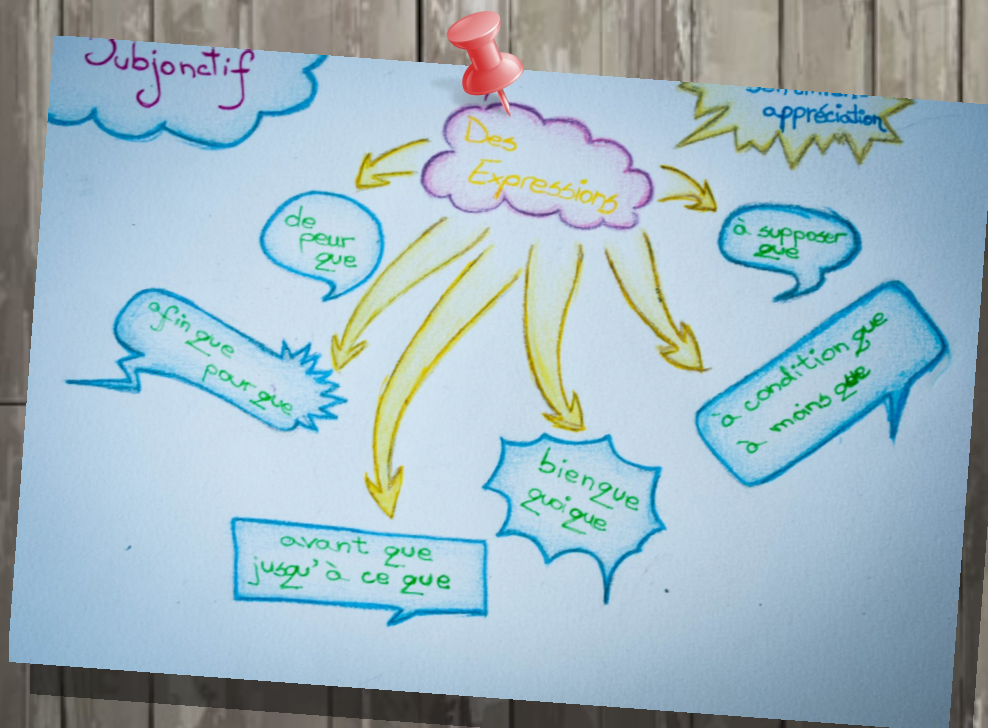 Subjonctif
appréciation
Des
Expressions
de
peur
que
à supposer
que
afin que
pour que
à condition que
à moins que
bien que
quoi que
avant que
jusqu'à ce que